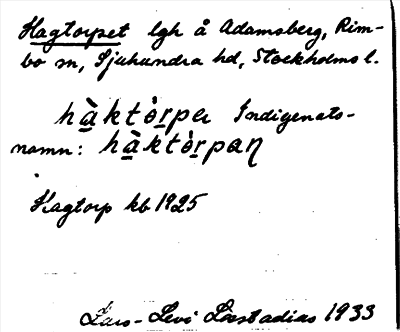 Hagtorpet lgh å Adamsberg, Rim-
bo sn, Sjuhundra hd, Stockholms l.
hàktòrpeʀ Indigenats-
namn: hàktòrpaɳ
Hagtorp kb 1925
Lars-Levi Læstadius 1933